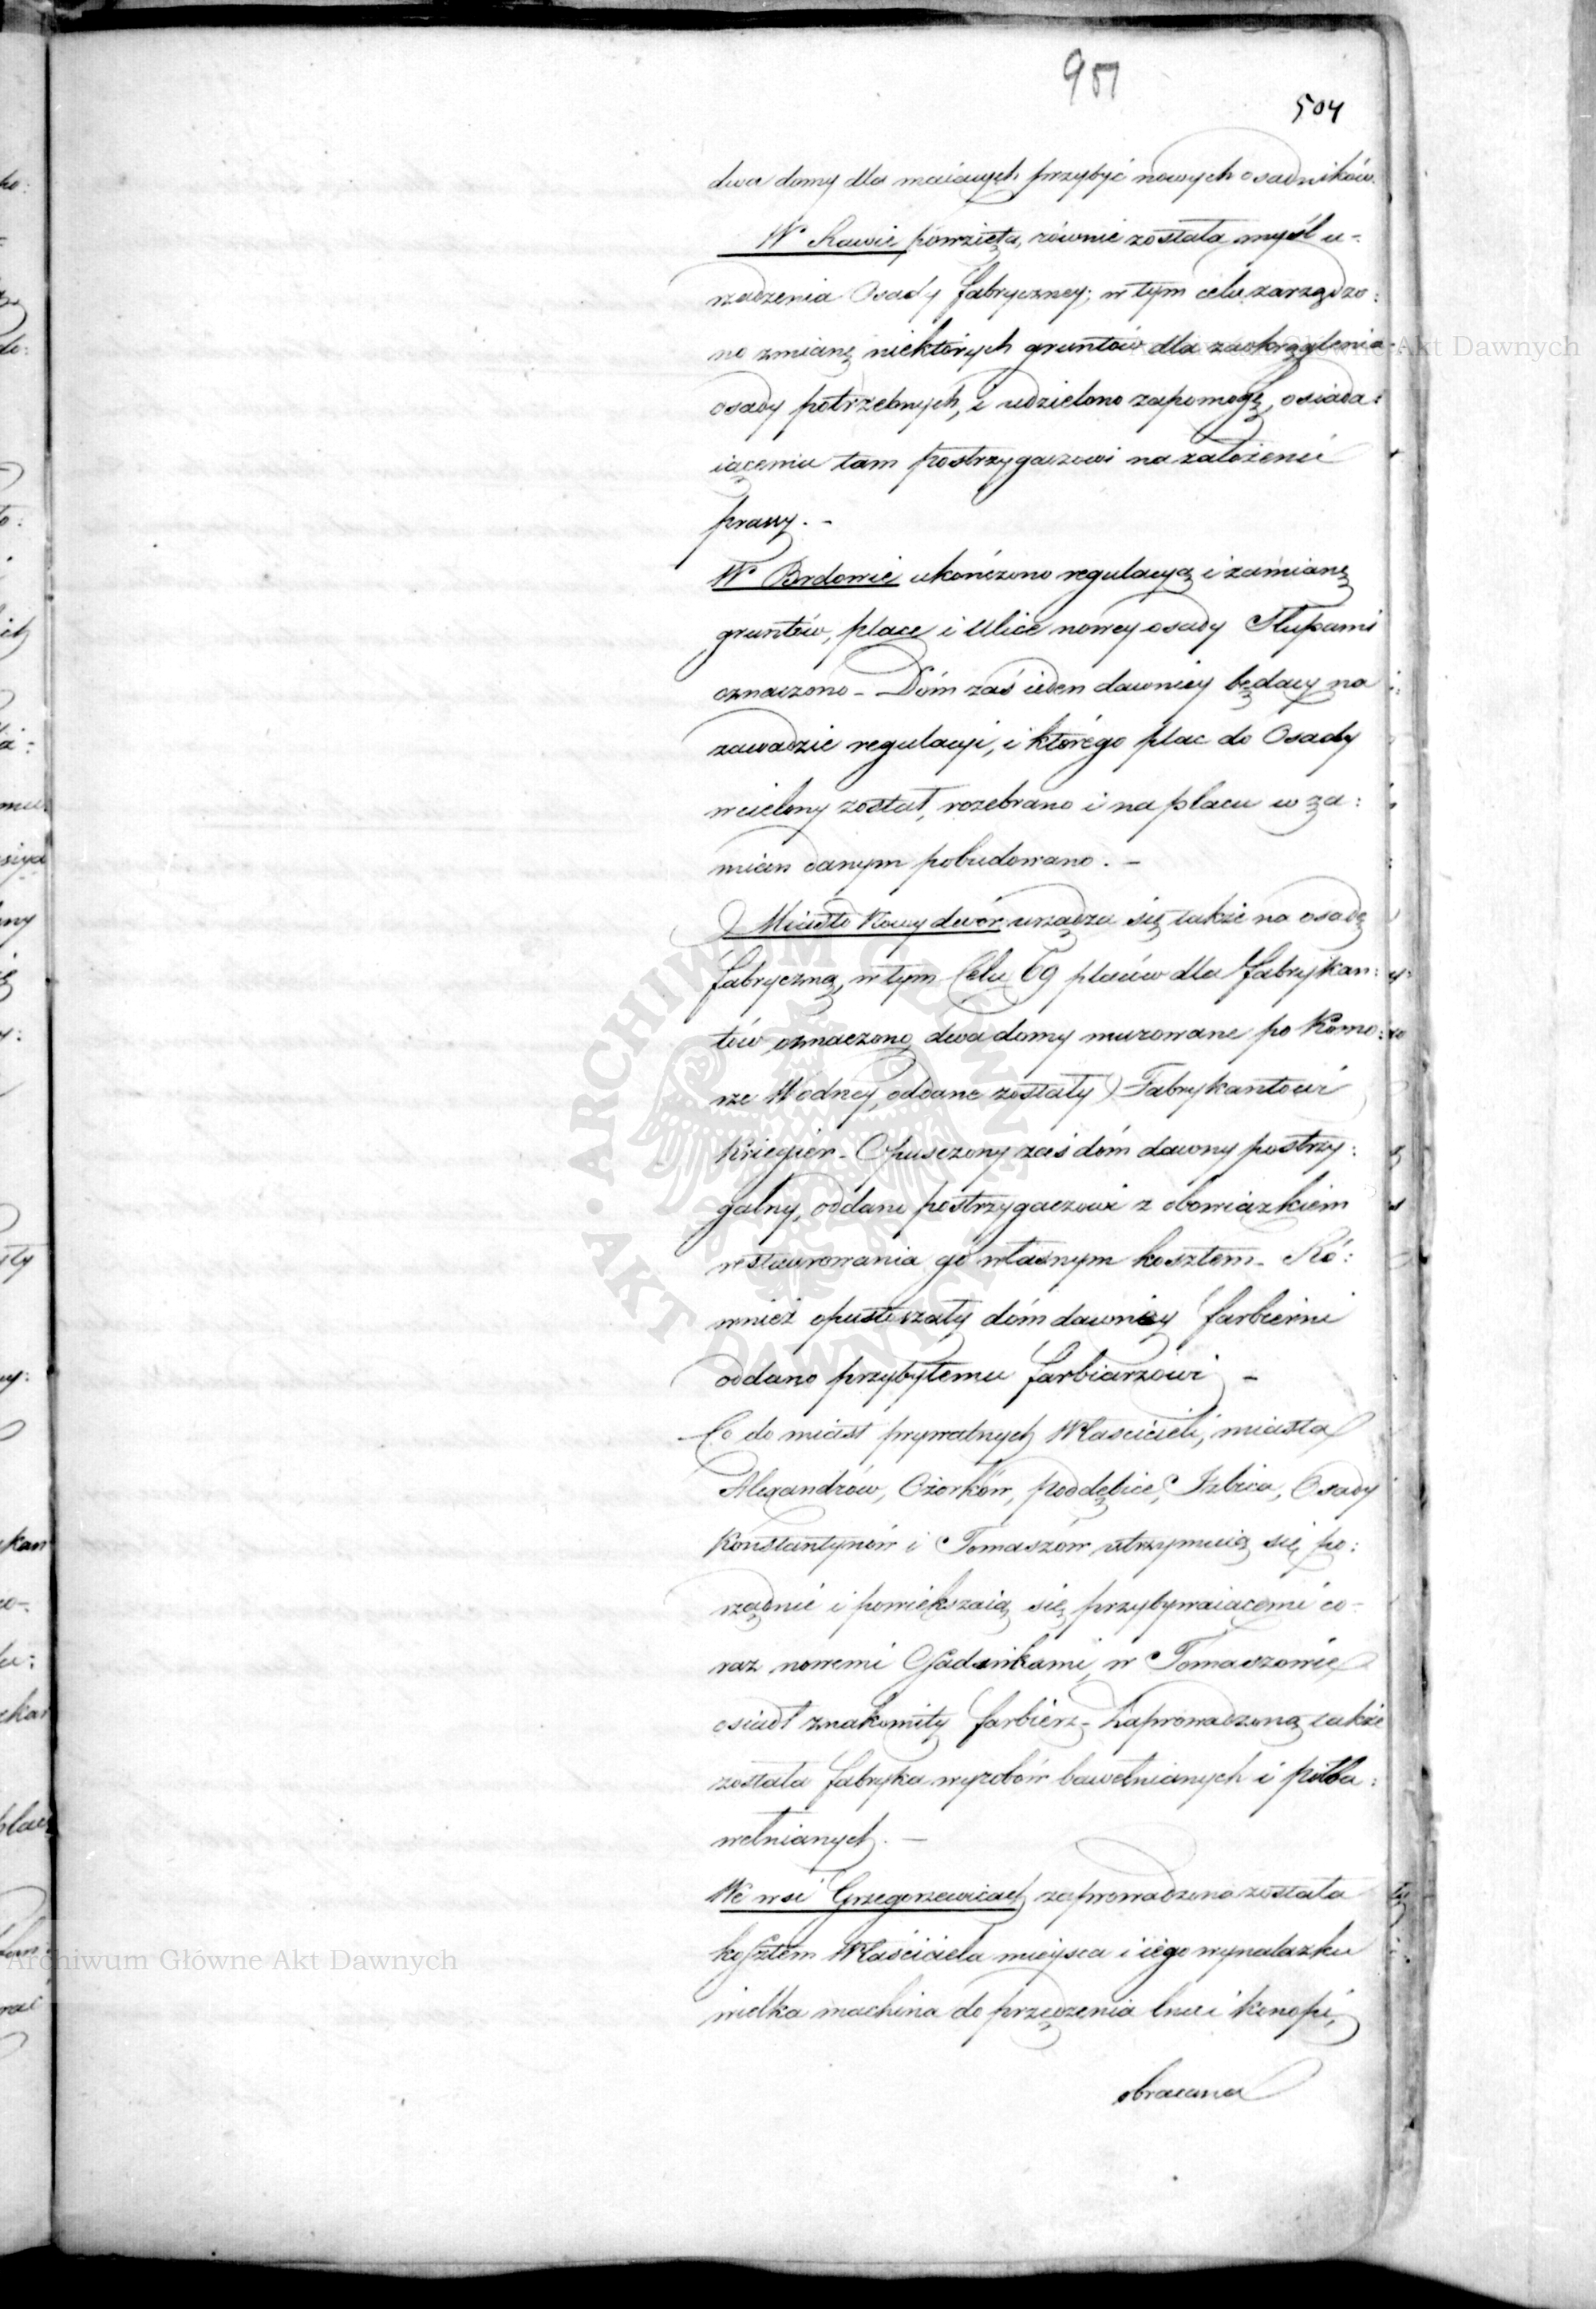 504
dwa domy dla maiących przybyć nowych osadników.
W Rawie powzięta, równie została myśl u-
rządzenia Osady fabryczney; w tym celu zarządzo:
no zmianę niektórych gruntów dla zaokrąglenia
osady potrzebnych, i udzielono zapomogę, osiada:
iącemu tam postrzygaczowi na założenie
prassy. -
W Brdowie ukończono regulacyą i zamianę
gruntów, place i Ulice nowey osady Słupami
oznaczono - Dóm zaś ieden dawniey będący na
zawadzie regulacyi, i którego plac do Osady
wcielony został, rozebrano i na placu w za:
mian danym pobudowano. -
Miasto Nowy dwór urządza się także na osadę
fabryczną, w tym Celu 69 placów dla fabrykan:
tów oznaczono, dwa domy murowane po Komo:
rze Wodney, oddane zostały Fabrykantowi
Kriegier - Opuszczony zaś dóm dawny postrzy:
galny, oddano postrzygaczowi z obowiązkiem
restaurowania go własnym kosztem - Ró:
wnież opustoszały dóm dawniey farbierni
oddano przybyłemu farbiarzowi -
Co do miast prywatnych Właścicieli, miasta
Alexandrów, Ozorków, Poddębice, Izbica, Osady
Konstantynów i Tomaszów utrzymuią się po:
rządnie i powiększaią się przybywaiącemi co-
raz nowemi Osadnikami, w Tomaszowie
osiadł znakomity farbierz - Zaprowadzoną także
została fabryka wyrobów bawełnianych i półba:
wełnianych. -
We wsi Grzegorzewicach zaprowadzona została
kosztem Właściciela mieysca i iego wynalazku
wielka machina do przędzenia lnu i konopi,
obracana
Archiwum Główne Akt Dawnych
Archiwum Główne Akt Dawnych
ARCHIWUM GŁÓWNE
AKT DAWNYCH